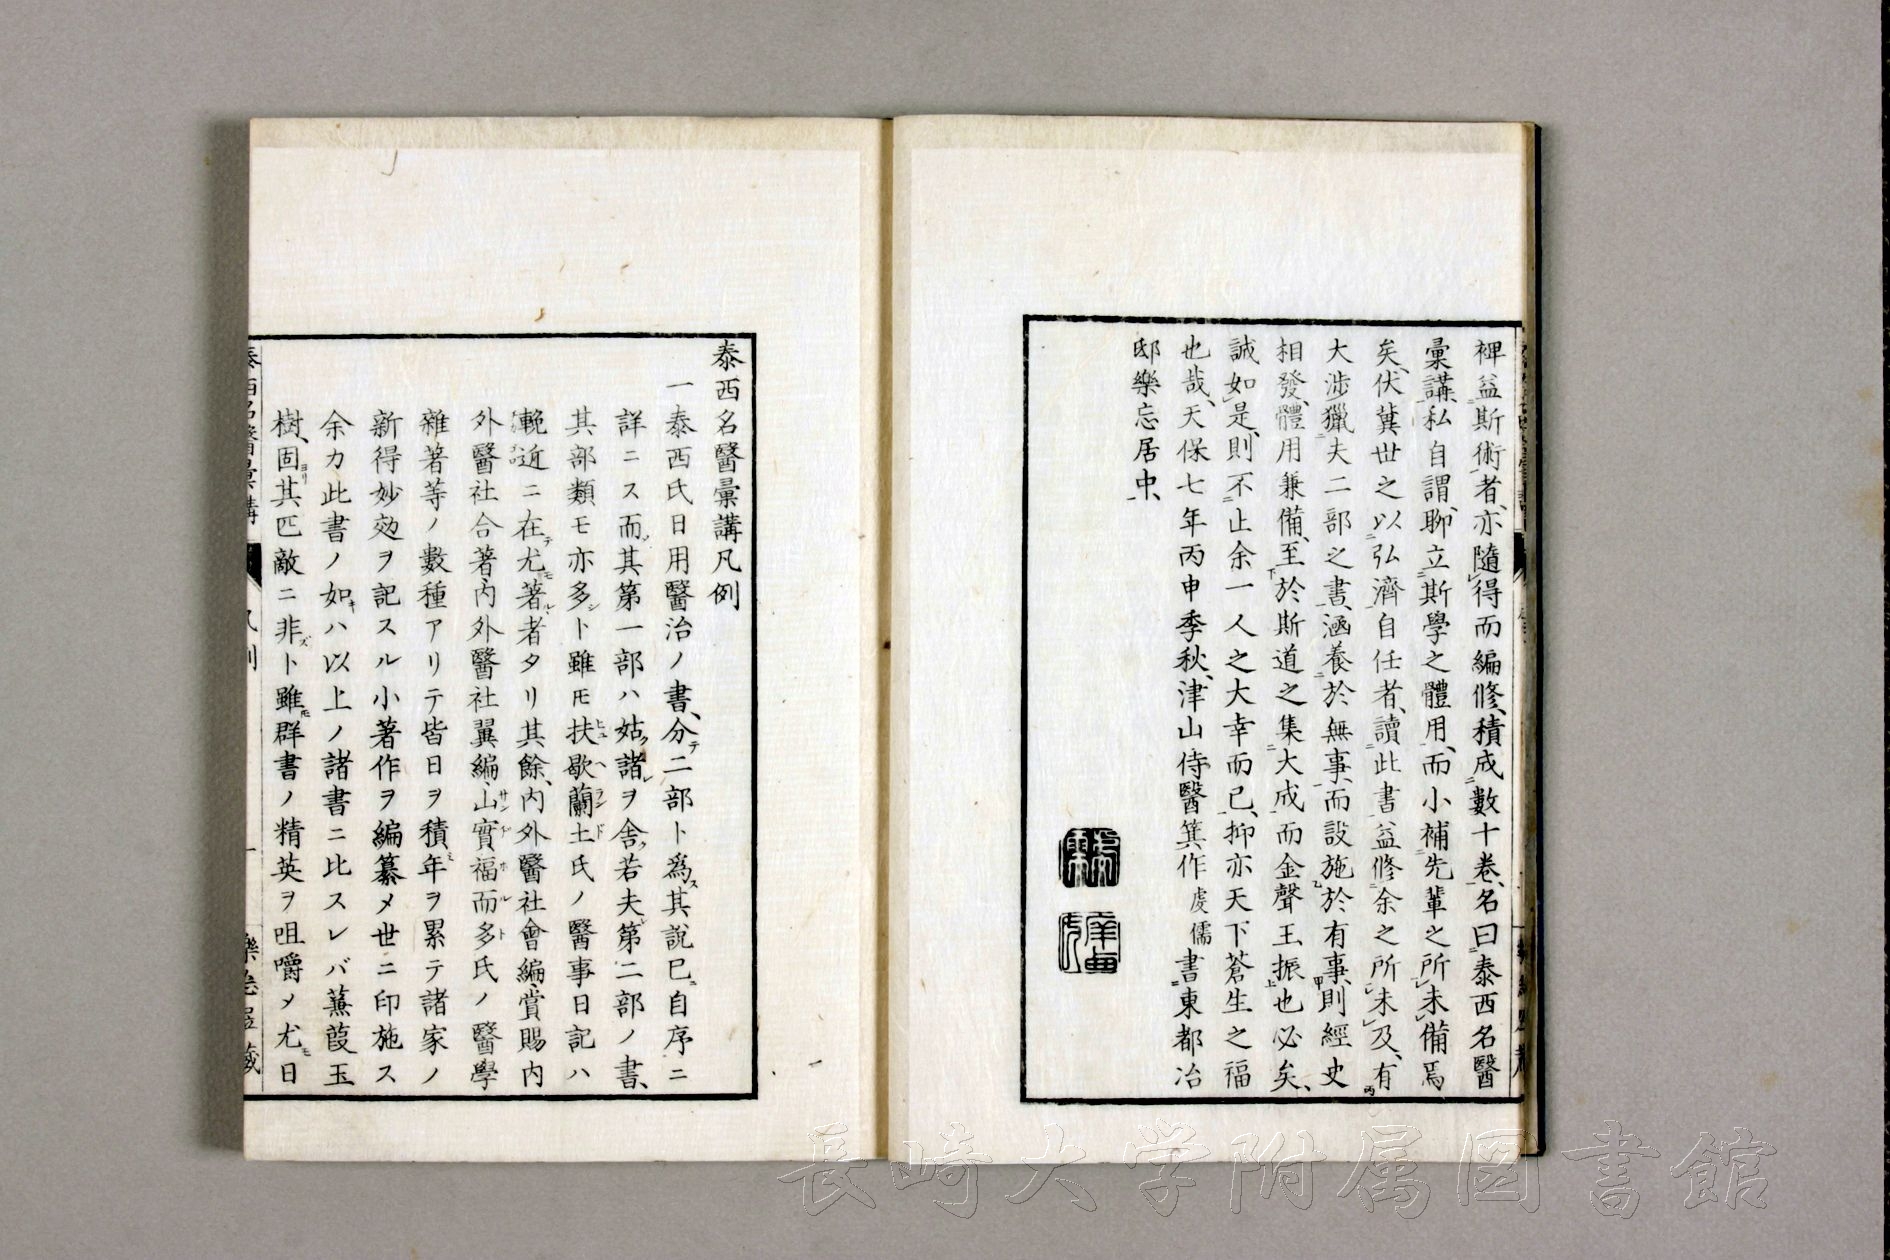 裨益斯術者、亦隨得而編修、積成數十卷、名曰泰西名醫
彙講、私自謂、聊立斯學之體用、而小補先輩之所未備焉
矣、伏冀世之以弘濟自任者、讀此書、益修余之所未及、有
大渉獵夫二部之書、涵養於無事、而設施於有事、則經史
相發、體用兼備、至於斯道之集大成、而金聲玉振也必矣、
誠如是、則不止余一人之大幸而已、抑亦天下蒼生之福
也哉、天保七年丙申季秋、津山侍醫箕作虔儒書東都冶
邸樂忘居中、
泰西名醫彙講凡例
一泰西氏日用醫治ノ書、分テ二部ト為ス其說已ニ自序ニ
詳ニス而其第一部ハ姑ク諸レヲ舍ク若夫レ第二部ノ書、
其部類モ亦多シト雖𪜈扶歇蘭土氏ノ醫事日記ハ
輓近ニ在テ尤モ著ルヽ者タリ其餘、內外醫社會編、賞賜內
外醫社合著、內外醫社翼編、山實福而多氏ノ醫學
雜著等ノ數種アリテ皆日ヲ積ミ年ヲ累テ諸家ノ
新得妙効ヲ記スル小著作ヲ編纂メ世ニ印施ス
余カ此書ノ如キハ以上ノ諸書ニ比スレバ蒹葭玉
樹、固ヨリ其匹敵ニ非ズト雖𪜈群書ノ精英ヲ咀嚼メ尤モ日
泰西名醫彙講
凡例
一
長崎大学附属図書館